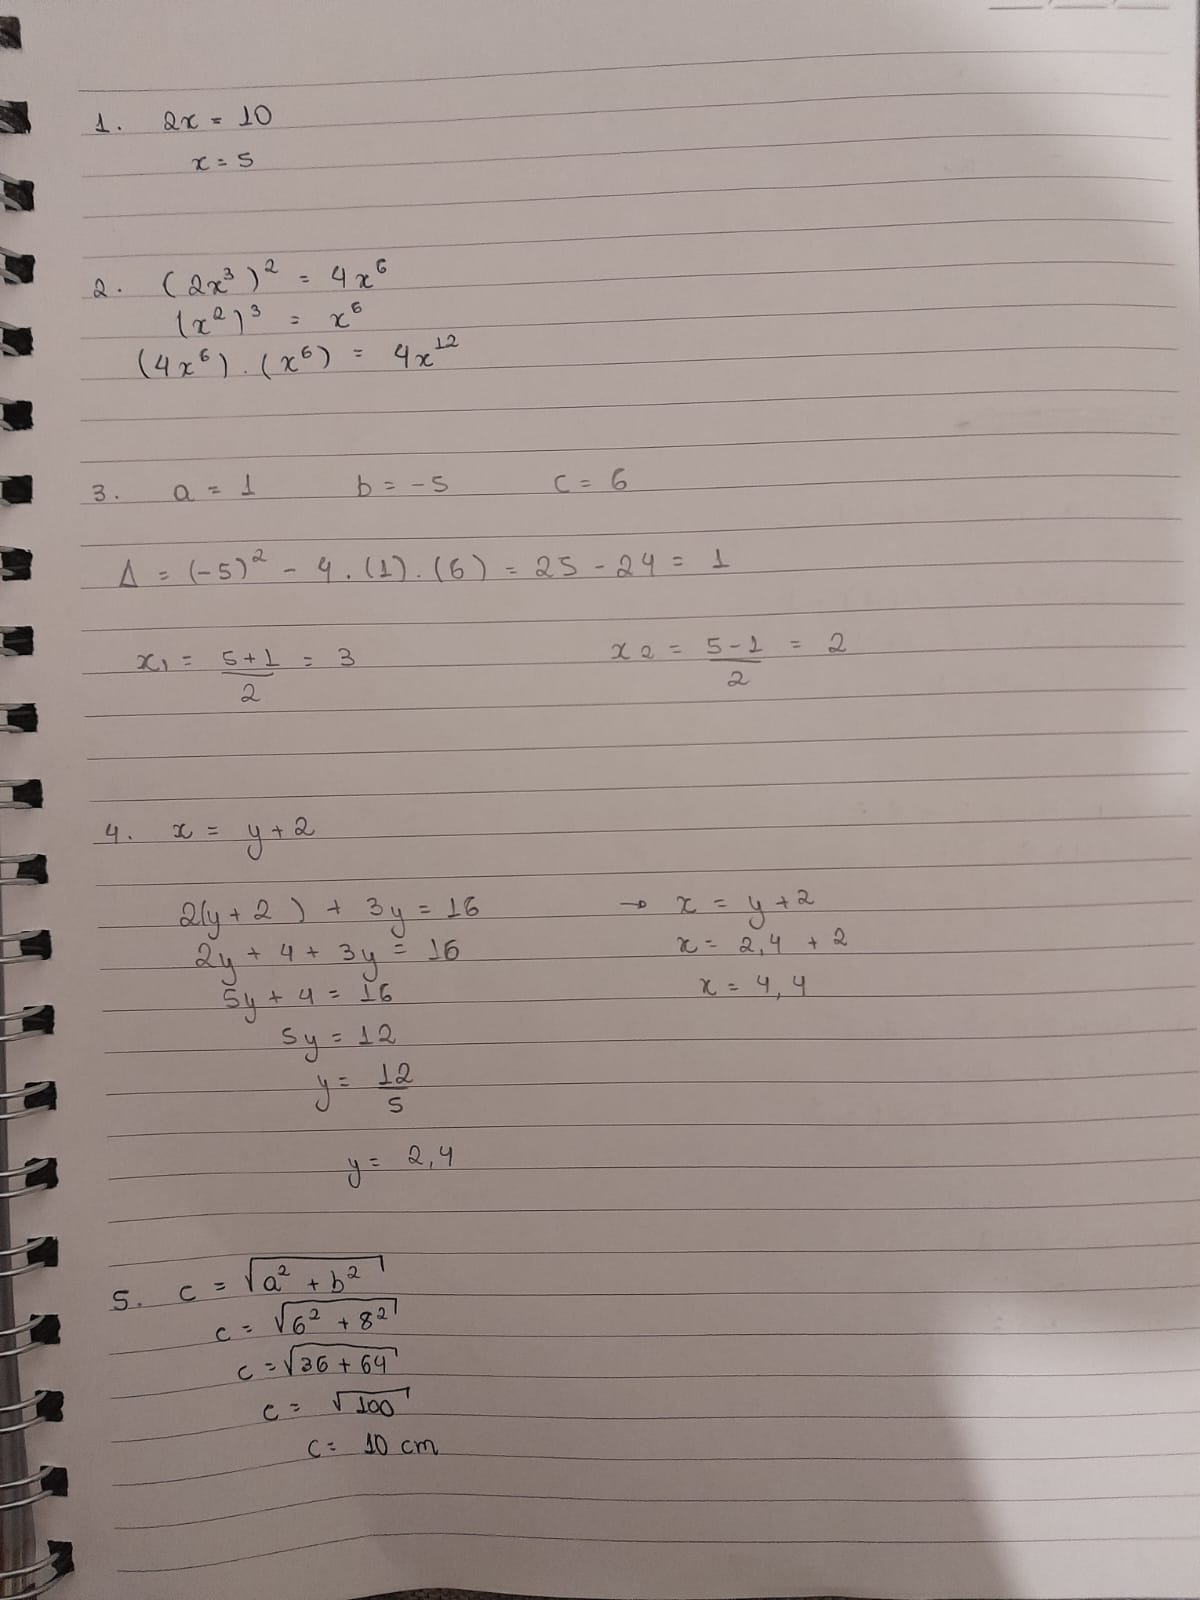 1. 2x = 10
x = 5
2. (2x³)² = 4x⁶
(x²)³ = x⁶
(4x⁶) . (x⁶) = 4x¹²
3. a = 1 b = -5 c = 6
Δ = (-5)² - 4 . (1) . (6) = 25 - 24 = 1
x₁ = (5+1)/2 = 3 x₂ = (5-1)/2 = 2
4. x = y + 2
2(y + 2) + 3y = 16 → x = y + 2
2y + 4 + 3y = 16 x = 2,4 + 2
5y + 4 = 16 x = 4,4
5y = 12
y = 12/5
y = 2,4
5. c = √(a² + b²)
c = √(6² + 8²)
c = √(36 + 64)
c = √100
c = 10 cm